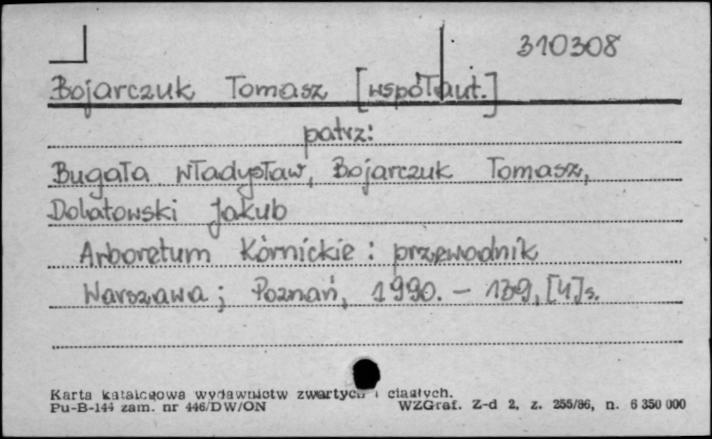 310308
Bojarczuk Tomasz [współaut.]
patrz:
Bugała Władysław, Bojarczuk Tomasz,
Dolatowski Jakub
Arboretum Kórnickie : przewodnik
Warszawa ; Poznań, 1990. – 139, [4] s.
Karta katalogowa wydawnictw zwartych i ciągłych.
Pu-B-144 zam. nr 446/DW/ON WZGraf. Z-d 2, z. 255/86, n. 6 350 000